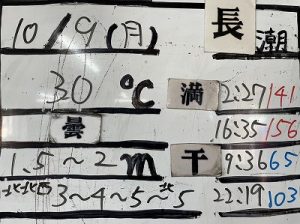 10/9(月) 長潮
30℃ 満 2:27 141
曇 16:35 156
1.5～2m 干 9:36 65
北北西3～4～5～北5 22:19 103